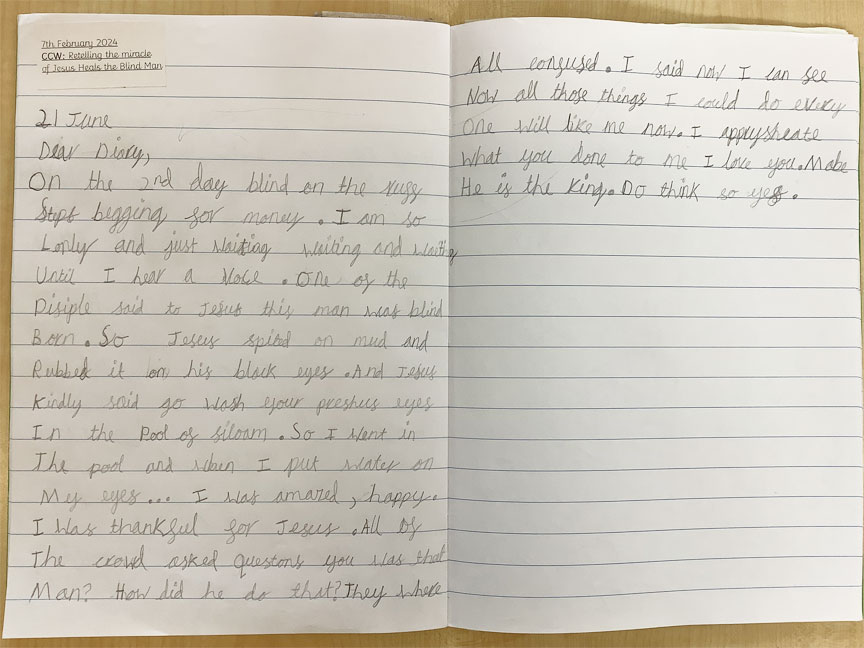 7th February 2024
CCW: Retelling the miracle
of Jesus Heals the Blind Man
21 June
Dear Diary,
On the 2nd day blind on the rugg
begging for money. I am so
Lonly and just waiting waiting and waiting
Until I hear a voice. One of the
Disiple said to Jesus this man was blind
Born. So Jesus spited on mud and
Rubbed it on his black eyes. And Jesus
Kindly said go wash your preshus eyes
In the Pool of siloam. So I went in
The pool and when I put water on
My eyes... I was amazed, happy.
I was thankful for Jesus. All of
The crowd asked questons you was that
Man? How did he do that? They where
All confused. I said now I can see
Now all those things I could do every
One will like me now. I apprysheate
What you done to me I love you. Mabe
He is the King. Do think so yes.